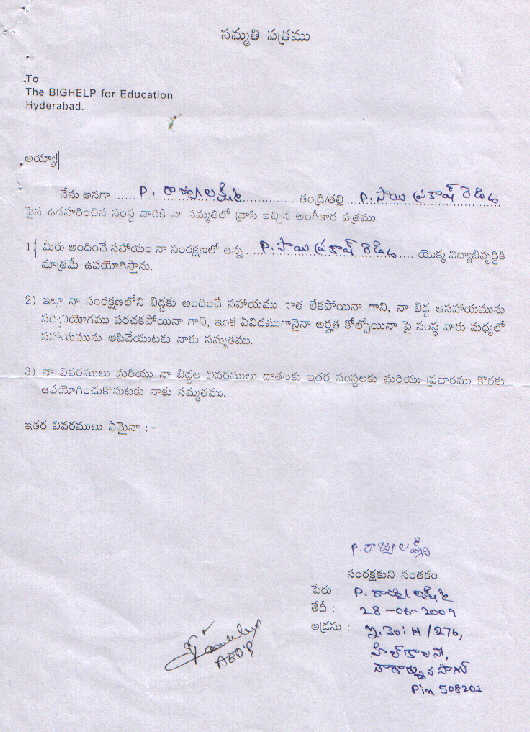 సమ్మతి పత్రము
To
The BIGHELP for Education
Hyderabad.
అయ్యా
నేను అనగా ..... P. రాజ్యలక్ష్మి ............. తండ్రి/తల్లి . P. సాయి ప్రకాష్ రెడ్డి
పైన ఉదహరించిన సంస్థ వారికి నా సమ్మతిలో వ్రాసి ఇచ్చిన అంగీకార పత్రము
1) మీరు అందించే సహాయం నా సంరక్షణలో ఉన్న P. సాయి ప్రకాష్ రెడ్డి ..... యొక్క విద్యాభివృద్ధికి
మాత్రమే ఉపయోగిస్తాను.
2) ఇలా నా సంరక్షణలోని బిడ్డకు అందించే సహాయము లేకపోయినా గాని, నా బిడ్డ సహాయమును
సద్వినియోగము పరచకపోయినా గాని, ఇంకా ఏవిధముగానైనా అర్హత కోల్పోయినా పై సంస్థ వారు మధ్యలో
సహాయమును ఆపివేయుటకు నాకు సమ్మతము.
3) నా వివరములు మరియు నా బిడ్డల వివరములు దాతలకు ఇతర సంస్థలకు మరియు ప్రచారము కొరకు
ఉపయోగించుకొనుటకు నాకు సమ్మతము.
ఇతర వివరములు ఏమైనా : -
P. రాజ్యలక్ష్మి
సంరక్షకుని సంతకం
పేరు P. రాజ్యలక్ష్మి
తేదీ : 28-06-2009
అడ్రసు : H/276,
హిల్ కాలనీ,
నాగార్జున సాగర్
Pin 508202